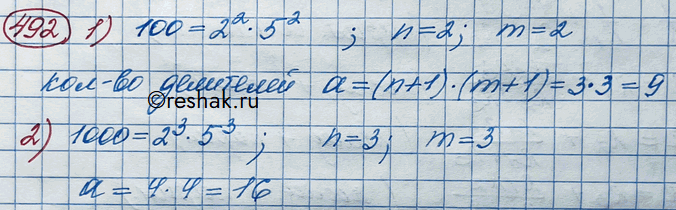 492. 1) 100 = 2² · 5² ; n=2; m=2
кол-во делителей a=(n+1)·(m+1)=3·3=9
©reshak.ru
2) 1000=2³·5³; n=3; m=3
a = 4·4=16